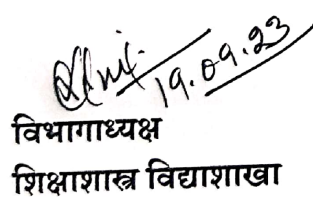 19.09.23
विभागाध्यक्ष
शिक्षाशास्त्र विद्याशाखा